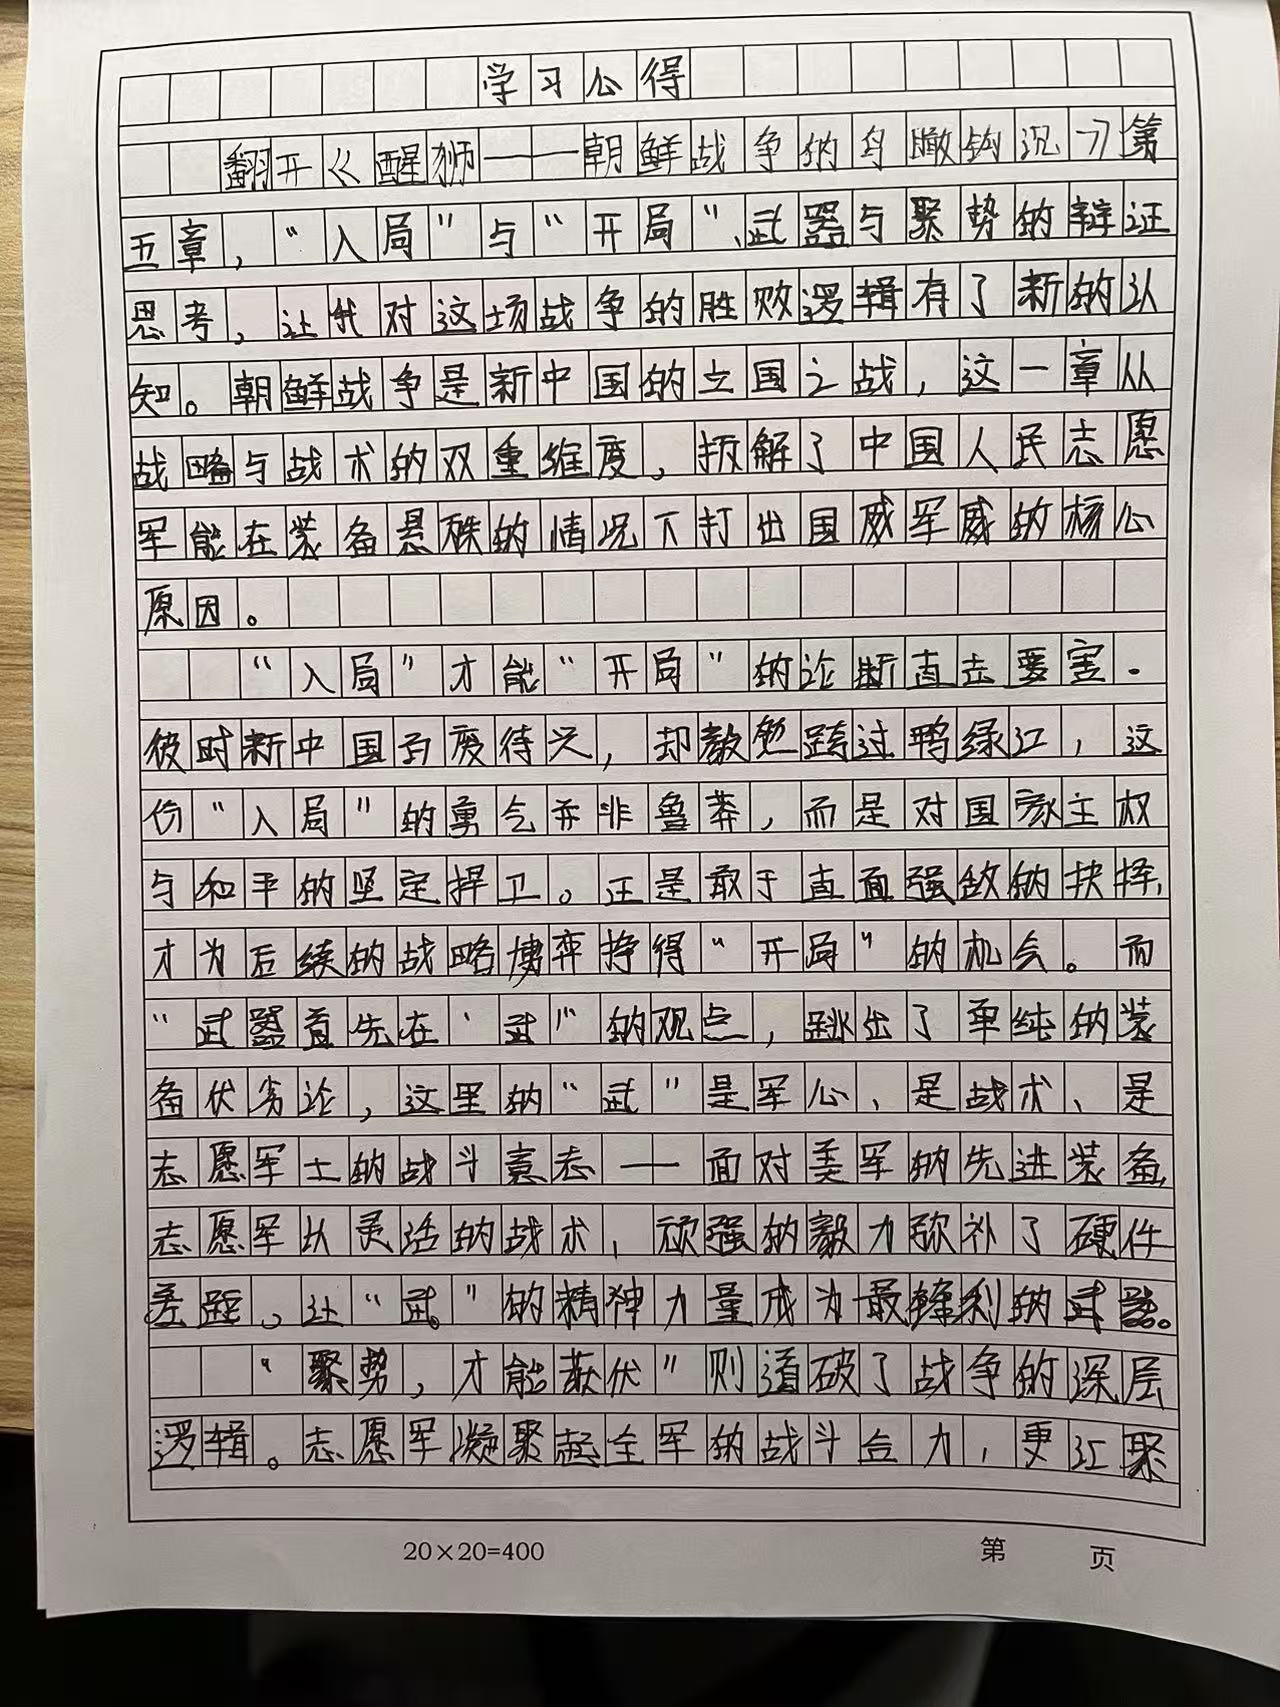 学习心得
翻开《醒狮——朝鲜战争的鸟瞰钩沉》第
五章，“入局”与“开局”、武器与聚势的辩证
思考，让我对这场战争的胜败逻辑有了新的认
知。朝鲜战争是新中国的立国之战，这一章从
战略与战术的双重维度，拆解了中国人民志愿
军能在装备悬殊的情况下打出国威军威的核心
原因。
“入局”才能“开局”的论断直击要害．
彼时新中国百废待兴，却敢勉跨过鸭绿江，这
份“入局”的勇气并非鲁莽，而是对国家主权
与和平的坚定捍卫。正是敢于直面强敌的抉择，
才为后续的战略博弈挣得“开局”的机会。而
“武器首先在‘武’”的观点，跳出了单纯的装
备优劣论，这里的“武”是军心、是战术、是
志愿军士的战斗意志——面对美军的先进装备，
志愿军以灵活的战术，顽强的毅力弥补了硬件
差距，让“武”的精神力量成为最锋利的武器。
“聚势，才能获优”则道破了战争的深层
逻辑。志愿军凝聚起全军的战斗合力，更汇聚
20×20=400
第 页